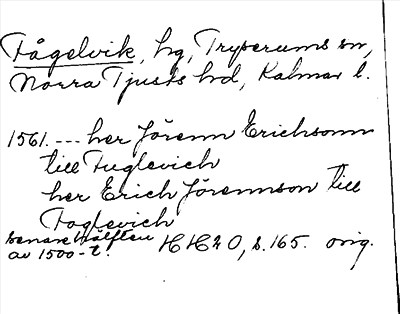 Fågelvik, hg, Tryserums sn,
Norra Tjusts hd, Kalmar l.
1561. --- her Jörenn Erichsonn
till Fuglevich
her Erich Jörennson till
Foglevich
senare hälften
av 1500-t. HH 20, s. 165. orig.